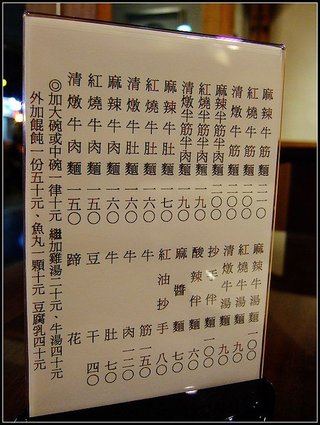 麻辣牛筋麵二一〇
紅燒牛筋麵二〇〇
清燉牛筋麵二〇〇
麻辣半筋半肉麵二〇〇
紅燒半筋半肉麵一九〇
清燉半筋半肉麵一九〇
麻辣牛肚麵一七〇
紅燒牛肚麵一六〇
清燉牛肚麵一六〇
麻辣牛肉麵一六〇
紅燒牛肉麵一五〇
清燉牛肉麵一五〇
麻辣牛湯麵一〇〇
紅燒牛湯麵九〇
清燉牛湯麵九〇
抄手伴麵一〇〇
酸辣伴麵六〇
麻醬麵七〇
紅油抄手八〇
牛筋一五〇
牛肉一二〇
牛肚七〇
豆干四〇
蹄花
◎加大碗或中碗一律十元 繼加雞湯二十元 牛湯四十元
外加餛飩一份五十元、魚丸一顆十元 豆腐乳四十元